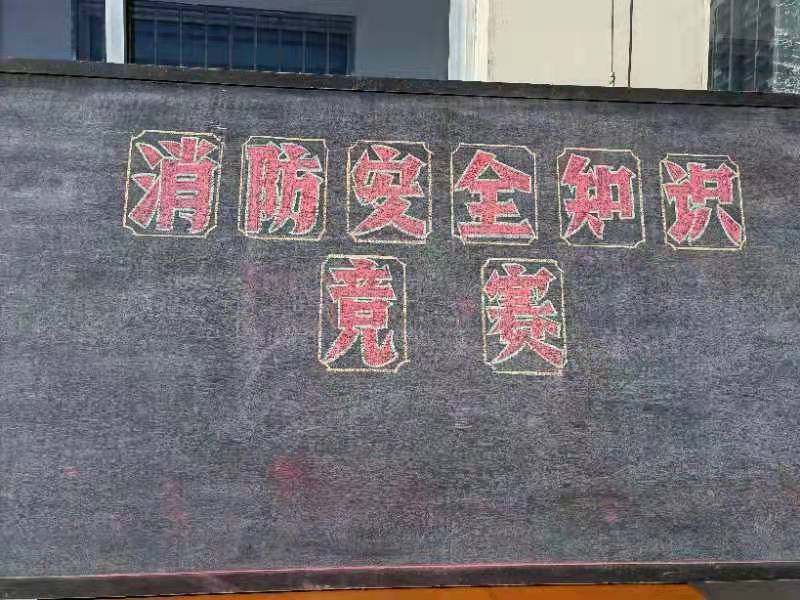 消防安全知识
竞赛